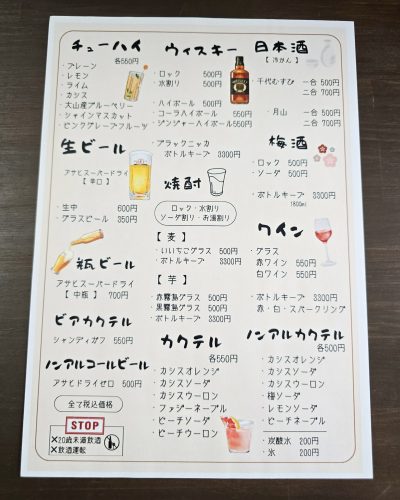 チューハイ
各550円
・プレーン
・レモン
・ライム
・カシス
・大山産ブルーベリー
・シャインマスカット
・ピンクグレープフルーツ
生ビール
アサヒスーパードライ
【辛口】
・生中 600円
・グラスビール 350円
瓶ビール
アサヒスーパードライ
【中瓶】 700円
ビアカクテル
シャンディガフ 550円
ノンアルコールビール
アサヒドライゼロ 500円
全て税込価格
STOP
×20歳未満飲酒
×飲酒運転
ウィスキー
・ロック 500円
・水割り 500円
・ハイボール 500円
・コーラハイボール 550円
・ジンジャーハイボール550円
・ブラックニッカ
ボトルキープ 3300円
焼酎
ロック・水割り
ソーダ割り・お湯割り
【麦】
・いいちこグラス 500円
・ボトルキープ 3300円
【芋】
・赤霧島グラス 500円
・黒霧島グラス 500円
・ボトルキープ 3300円
カクテル
各550円
・カシスオレンジ
・カシスソーダ
・カシスウーロン
・ファジーネーブル
・ピーチソーダ
・ピーチウーロン
日本酒
【冷かん】
・千代むすび 一合 500円
二合 700円
・月山 一合 500円
二合 700円
梅酒
・ロック 500円
・ソーダ 500円
・ボトルキープ 3300円
(1800ml)
ワイン
・グラス
赤ワイン 550円
白ワイン 550円
・ボトルキープ 3300円
赤・白・スパークリング
ノンアルカクテル
各500円
・カシスオレンジ
・カシスソーダ
・カシスウーロン
・梅ソーダ
・レモンソーダ
・ピーチネーブル
・炭酸水 200円
・氷 200円